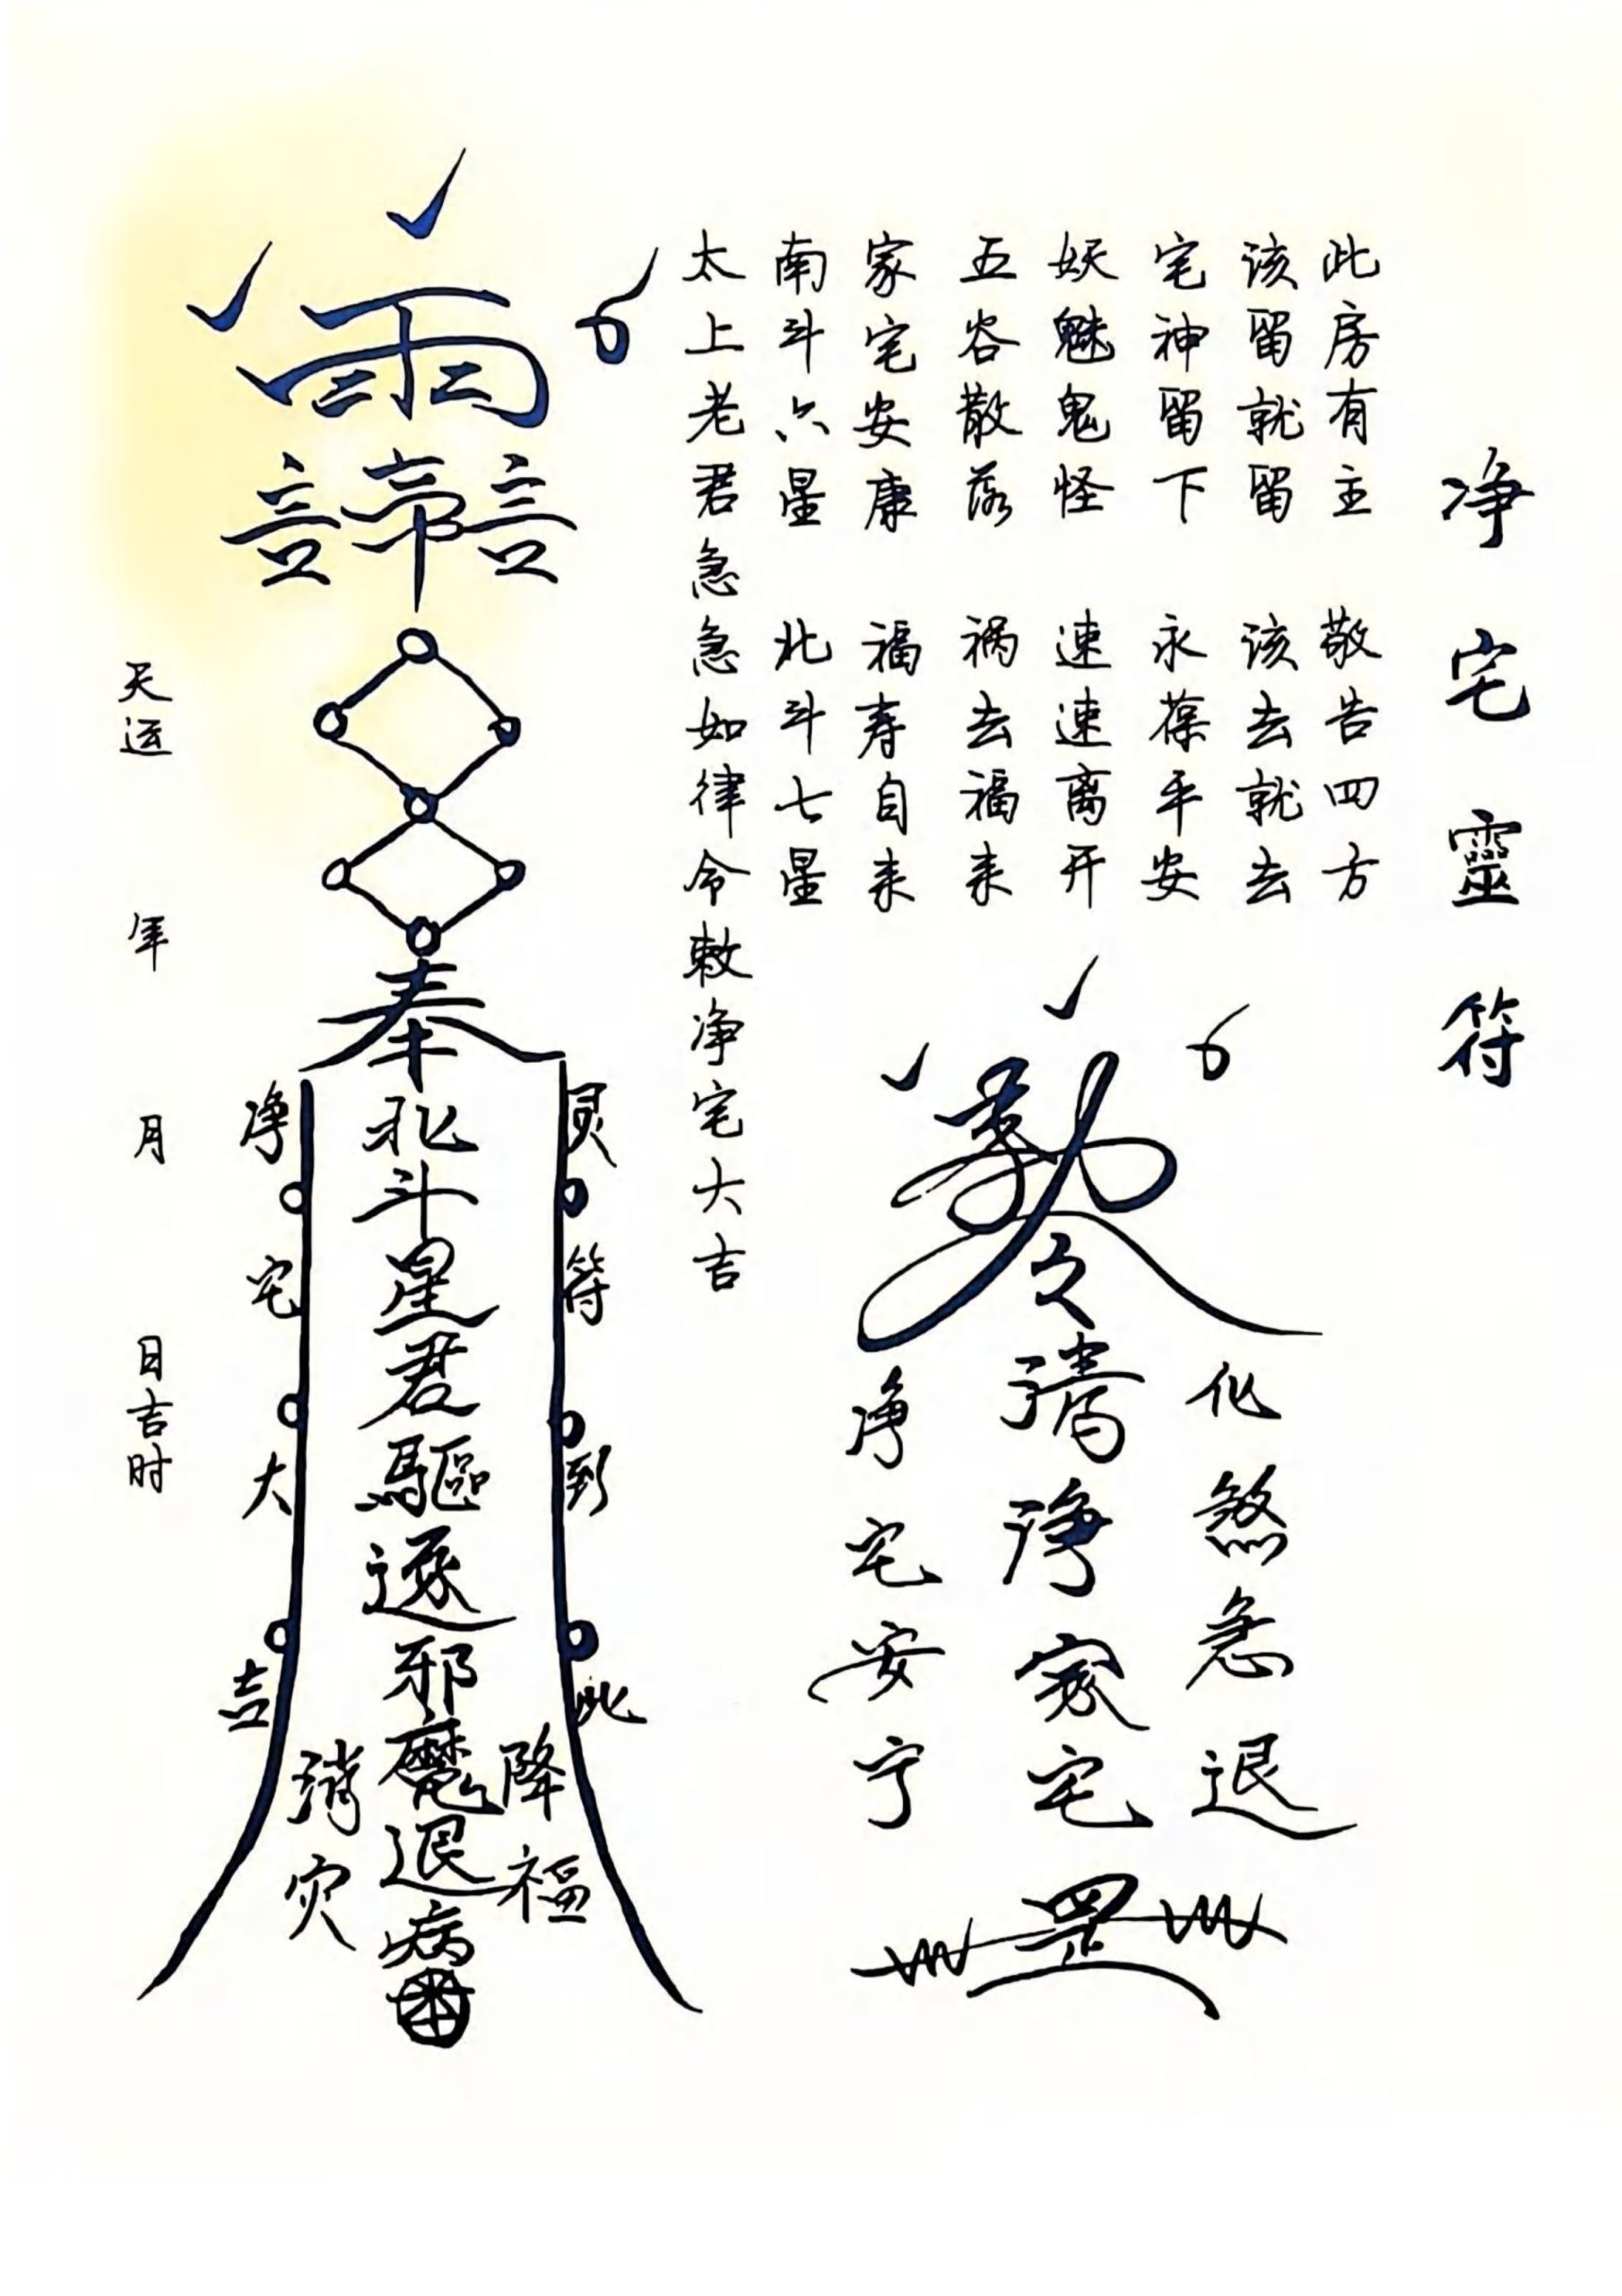 净宅靈符
此房有主 敬告四方
该留就留 该去就去
宅神留下 永葆平安
妖魅鬼怪 速速离开
五谷散落 祸去福来
家宅安康 福寿自来
南斗六星 北斗七星
太上老君急急如律令敕净宅大吉
化煞急退
清净家宅罡
净宅安宁
雨
奉北斗星君驅逐邪魔退病
灵符到此
净宅大吉
降福
消灾
天运 年 月 日吉时